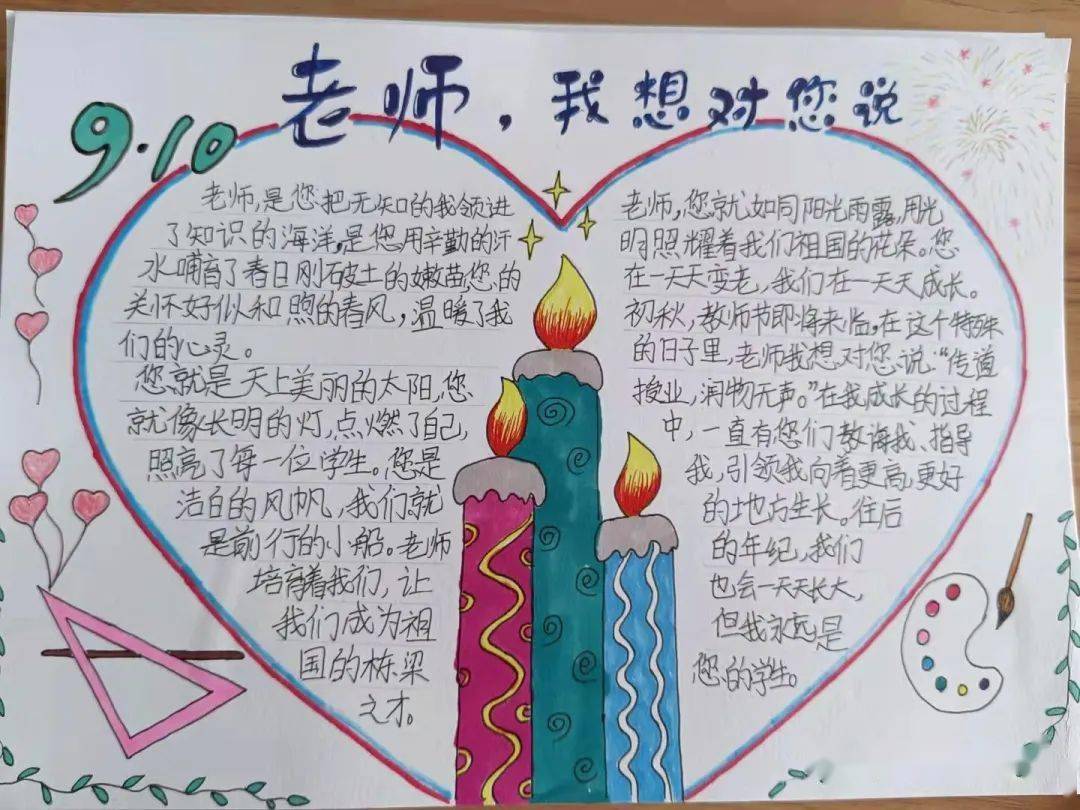 老师，我想对您说
9.10
老师，是您把无知的我领进
了知识的海洋，是您用辛勤的汗
水哺育了春日刚破土的嫩苗，您的
关怀好似和煦的春风，温暖了我
们的心灵。
您就是天上美丽的太阳，您
就像长明的灯，点燃了自己，
照亮了每一位学生。您是
洁白的风帆，我们就
是前行的小船。老师
培育着我们，让
我们成为祖
国的栋梁
之才。
老师，您就如同阳光雨露，用光
明照耀着我们祖国的花朵。您
在一天天变老，我们在一天天成长。
初秋，教师节即将来临，在这个特殊
的日子里，老师我想对您说：“传道
授业，润物无声。”在我成长的过程
中，一直有您们教诲我、指导
我，引领我向着更高，更好
的地方生长。往后
的年纪，我们
也会一天天长大，
但我永远是
您的学生。